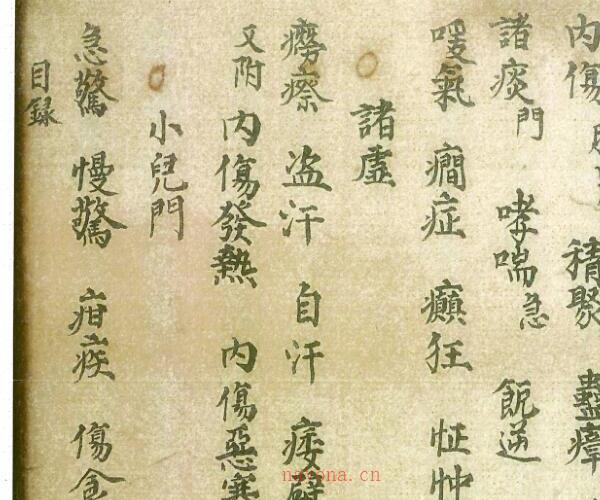 內傷 積聚 蠱瘴
諸痰門 哮喘急 飽逆
噯氣 癇症 癲狂 怔忡
諸虛
癆瘵 盜汗 自汗 痿
又附 內傷發熱 內傷惡寒
小兒門
急驚 慢驚 疳疾 傷食
目録
navona.cn